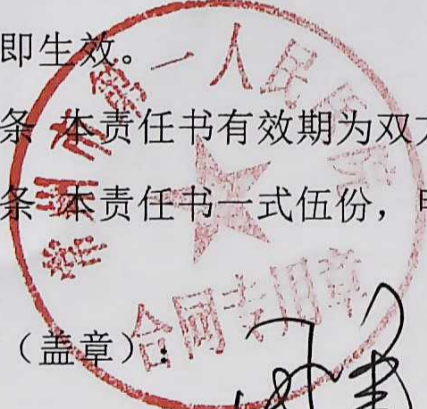 即生效。
条 本责任书有效期为双方
条 本责任书一式伍份，甲
（盖章）：
常州市第一人民医院
合同专用章